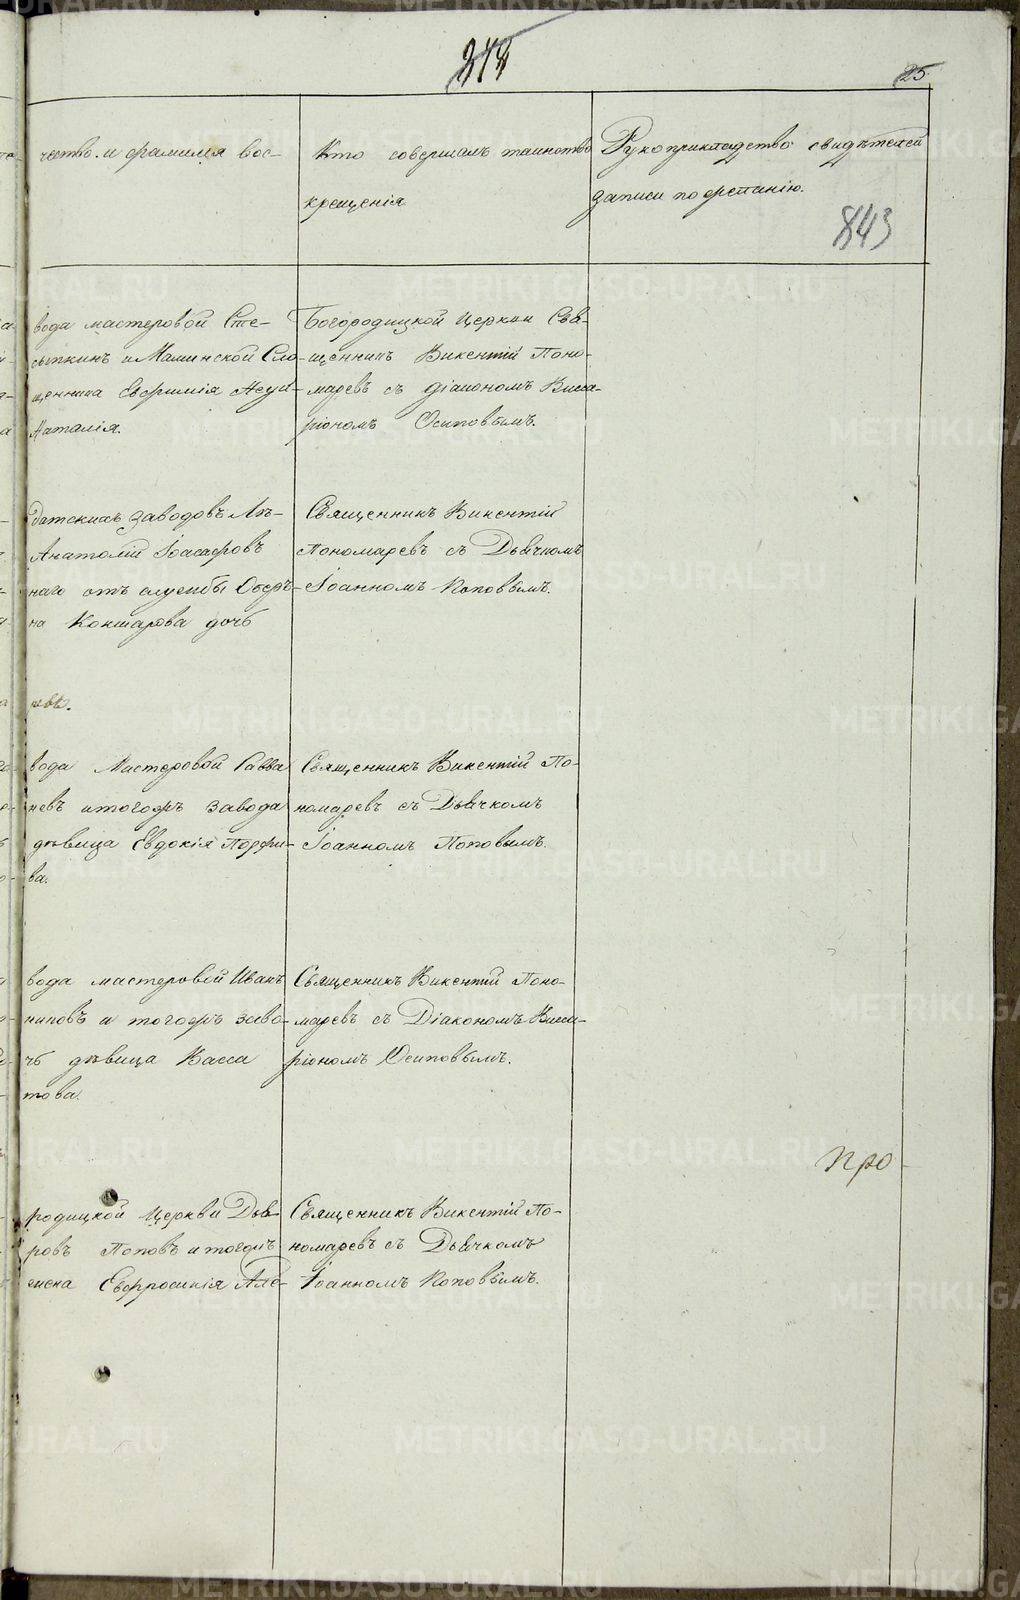 25
чество. и фамилія вос-
Кто совершалъ таинство
крещенія
Рукоприкладство свидѣтелей
записи по желанію.
843
вода мастеровой Сте-
и Маминской Сло-
щенника Евфимія
Наталія.
Богородицкой Церкви Свя-
щенникъ Викентій Поно-
маревъ съ діакономъ Висса-
ріономъ Осиповымъ.
заводовъ
Анатолій Іоасафовъ
наго отъ службы
на Коншарова дочь
Священникъ Викентій
Пономаревъ съ Дьячкомъ
Іоанномъ Поповымъ.
вода Мастеровой Савва
невъ и тогожъ завода
дѣвица Евдокія Порфи-
ва.
Священникъ Викентій По-
номаревъ съ Дьячкомъ
Іоанномъ Поповымъ.
вода мастеровой Иванъ
никовъ и тогожъ заво-
чь дѣвица Васса
това.
Священникъ Викентій Поно-
маревъ съ Діакономъ Висса-
ріономъ Осиповымъ.
Про-
родицкой Церкви Дья-
ровъ Поповъ и тогожъ
жена Евфросинія Але-
Священникъ Викентій По-
номаревъ съ Дьячкомъ
Іоанномъ Поповымъ.
METRIKI.GASO-URAL.RU